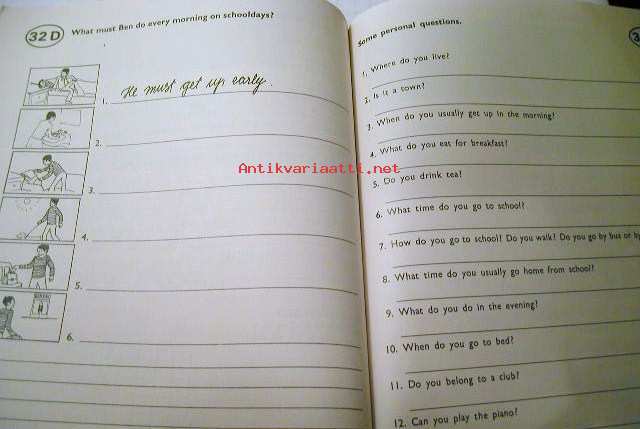 32 D
What must Ben do every morning on schooldays?
1. He must get up early.
2.
3.
4.
5.
6.
Some personal questions.
1. Where do you live?
2. Is it a town?
3. When do you usually get up in the morning?
4. What do you eat for breakfast?
5. Do you drink tea?
6. What time do you go to school?
7. How do you go to school? Do you walk? Do you go by bus or by
8. What time do you usually go home from school?
9. What do you do in the evening?
10. When do you go to bed?
11. Do you belong to a club?
12. Can you play the piano?
Antikvariaatti.net